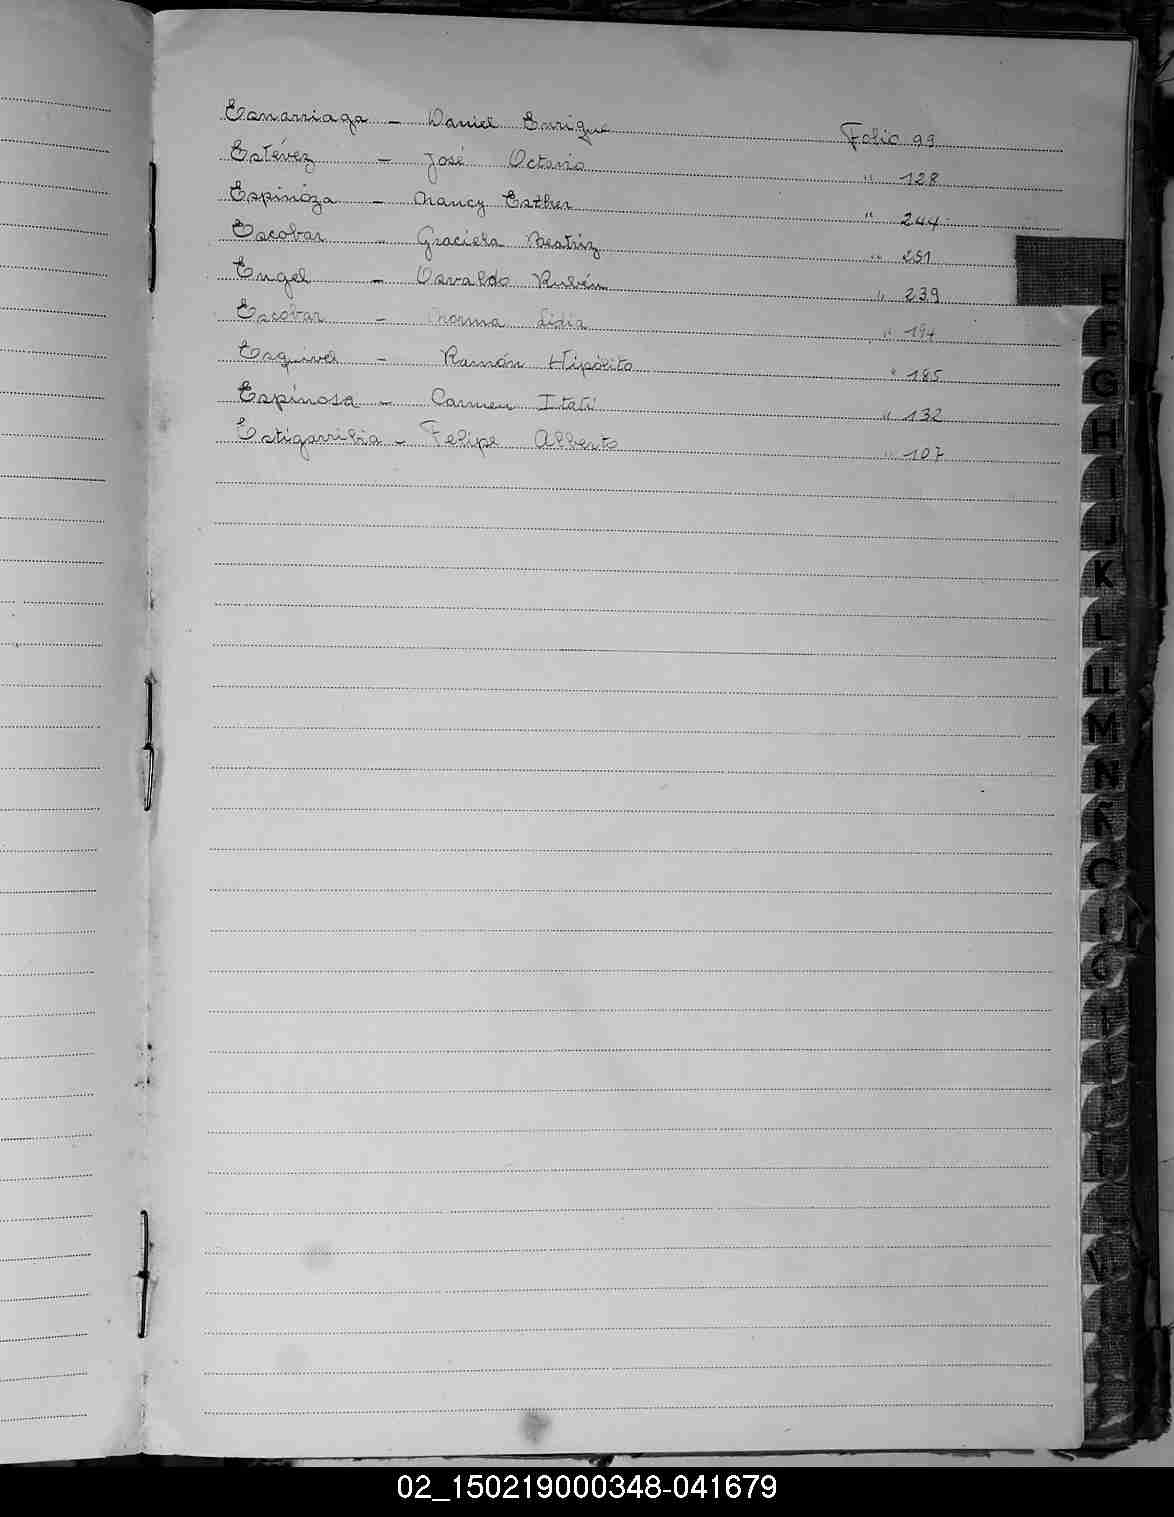 Esnarriaga - Daniel Enrique Folio 99
Estévez - José Octavio " 128
Espinóza - Nancy Esther " 244
Escobar - Graciela Beatriz " 251
Engel - Osvaldo Rubén " 239
Escobar - Norma Lidia " 194
Esquivel - Ramón Hipólito " 185
Espinosa - Carmen Itatí " 132
Estigarribia - Felipe Alberto " 107
E
F
G
H
I
J
K
L
M
N
02_150219000348-041679